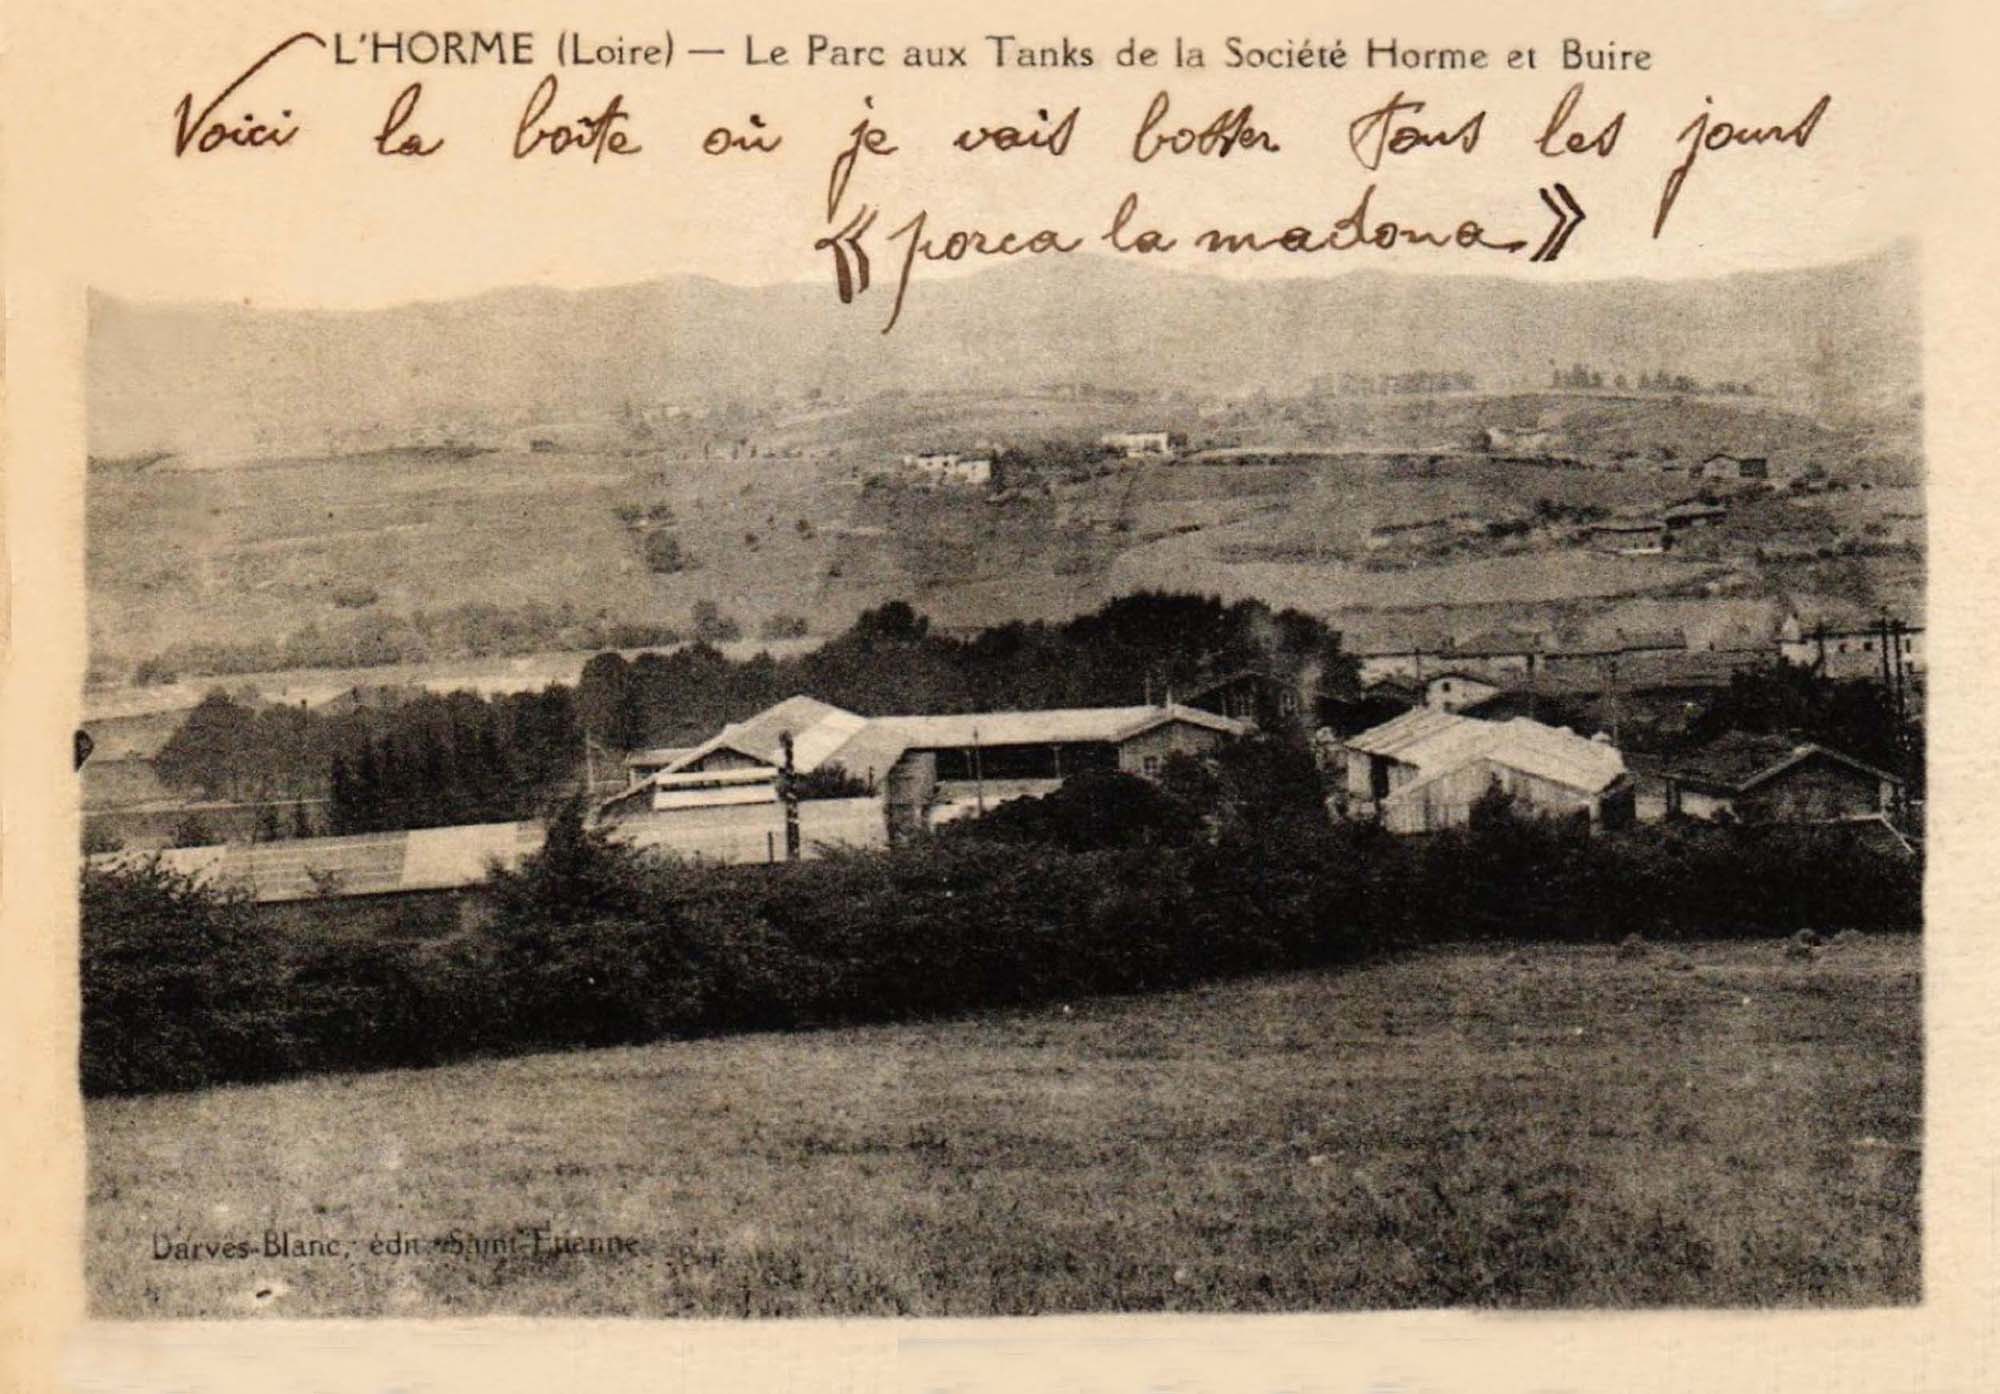 L'HORME (Loire) — Le Parc aux Tanks de la Société Horme et Buire
Voici la boîte où je vais botter tous les jours
« porca la madona »
Darves-Blanc, édit. Saint-Etienne